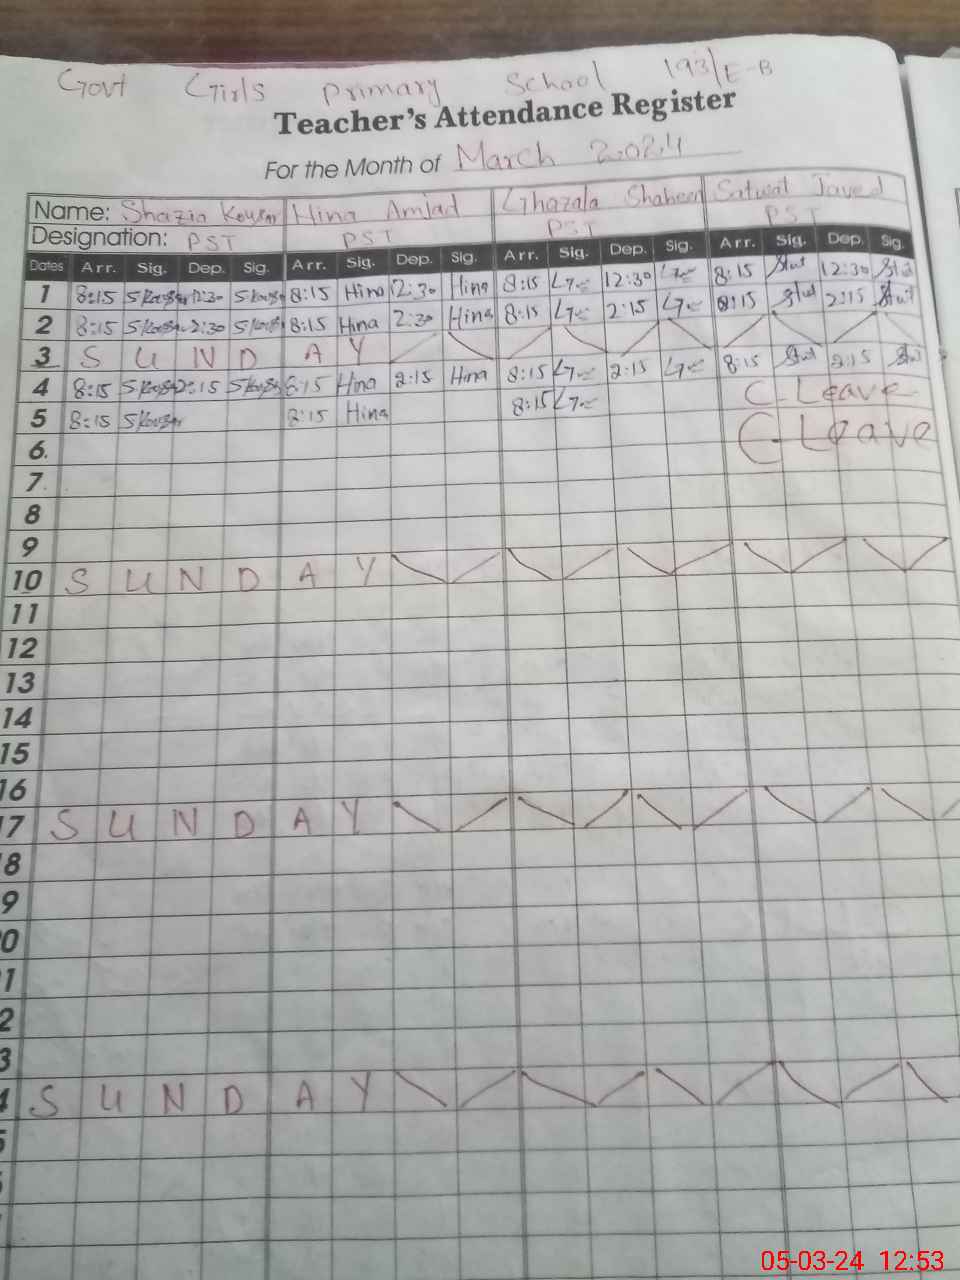 Govt Girls Primary School 193/E-B
Teacher's Attendance Register
For the Month of March 2024
Name: Shazia Kousar Hina Amjad Ghazala Shaheen Satwat Javed
Designation: PST PST PST PST
Dates Arr. Sig. Dep. Sig. Arr. Sig. Dep. Sig. Arr. Sig. Dep. Sig. Arr. Sig. Dep. Sig.
1 8:15 SKousar 12:30 SKousar 8:15 Hina 12:30 Hina 8:15 12:30 8:15 12:30
2 8:15 SKousar 2:30 SKousar 8:15 Hina 2:30 Hina 8:15 2:15 8:15 2:15
3 S U N D A Y
4 8:15 SKousar 2:15 SKousar 8:15 Hina 2:15 Hina 8:15 2:15 8:15 2:15
5 8:15 SKousar 8:15 Hina 8:15 C-Leave
6. C-Leave
7.
8
9
10 S U N D A Y
11
12
13
14
15
16
17 S U N D A Y
8
9
0
1
2
3
4 S U N D A Y
5
05-03-24 12:53